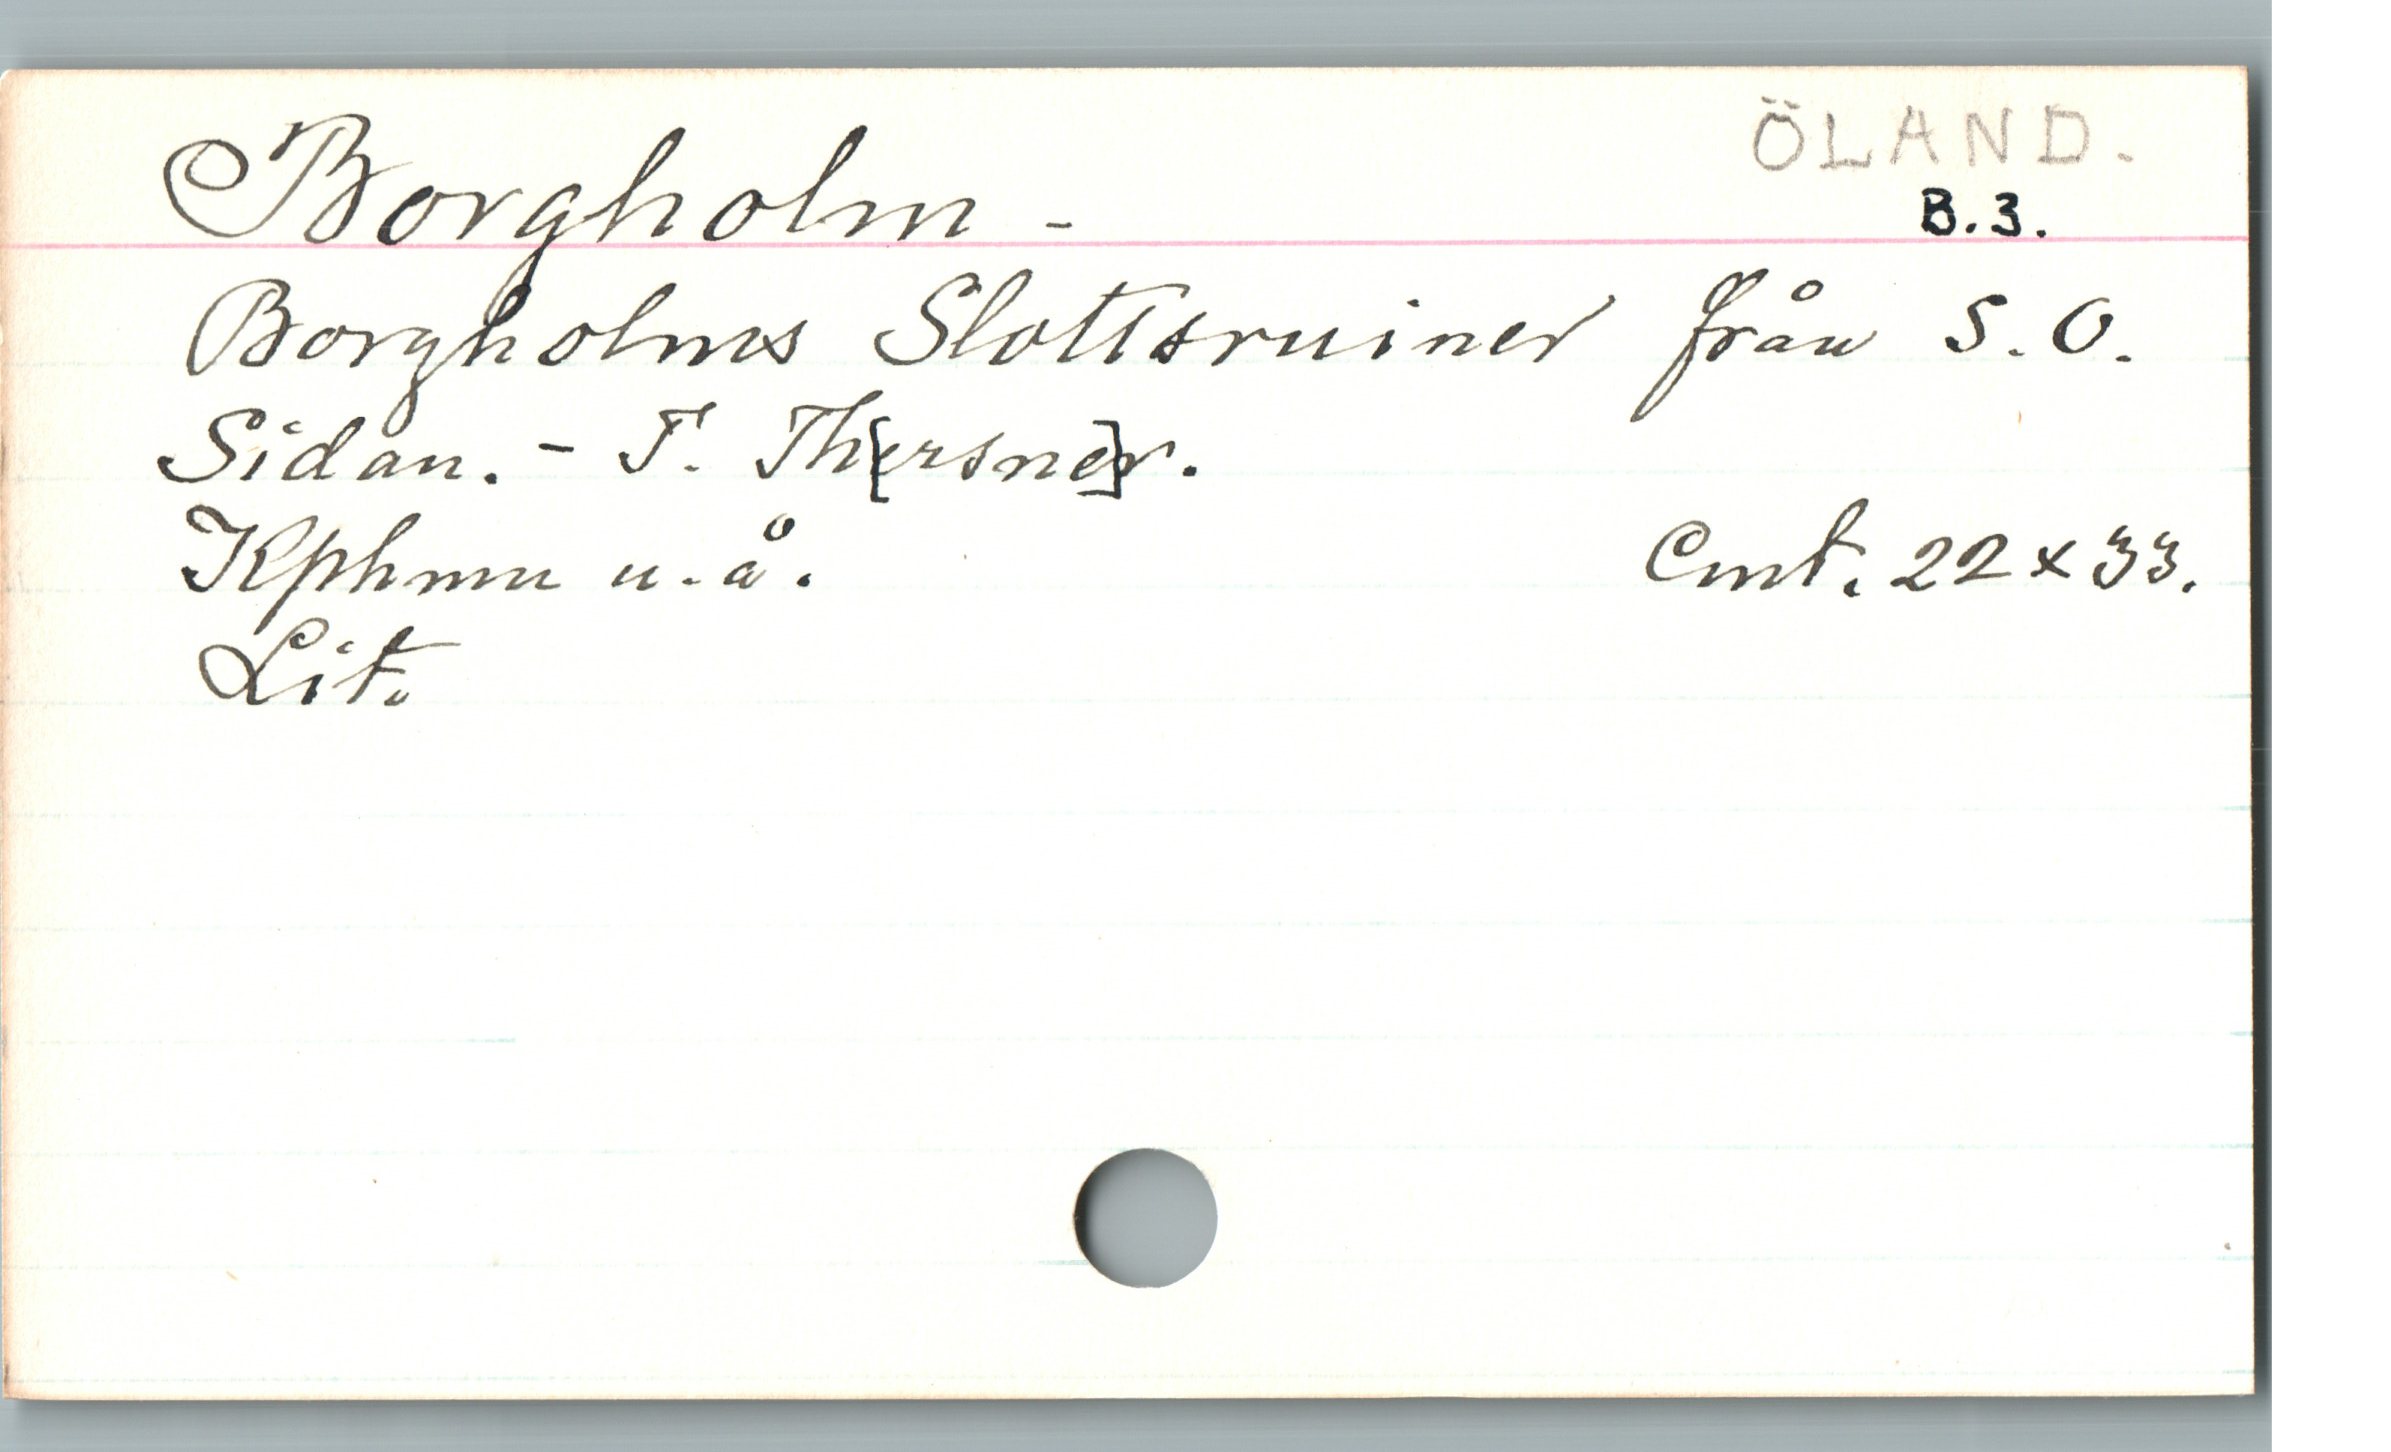 ÖLAND.
Borgholm -
B.3.
Borgholms Slottsruiner från S.O.
Sidan. - T. Th[ersne]r.
Kphmn u.å. Cmt. 22 x 33.
Lit.